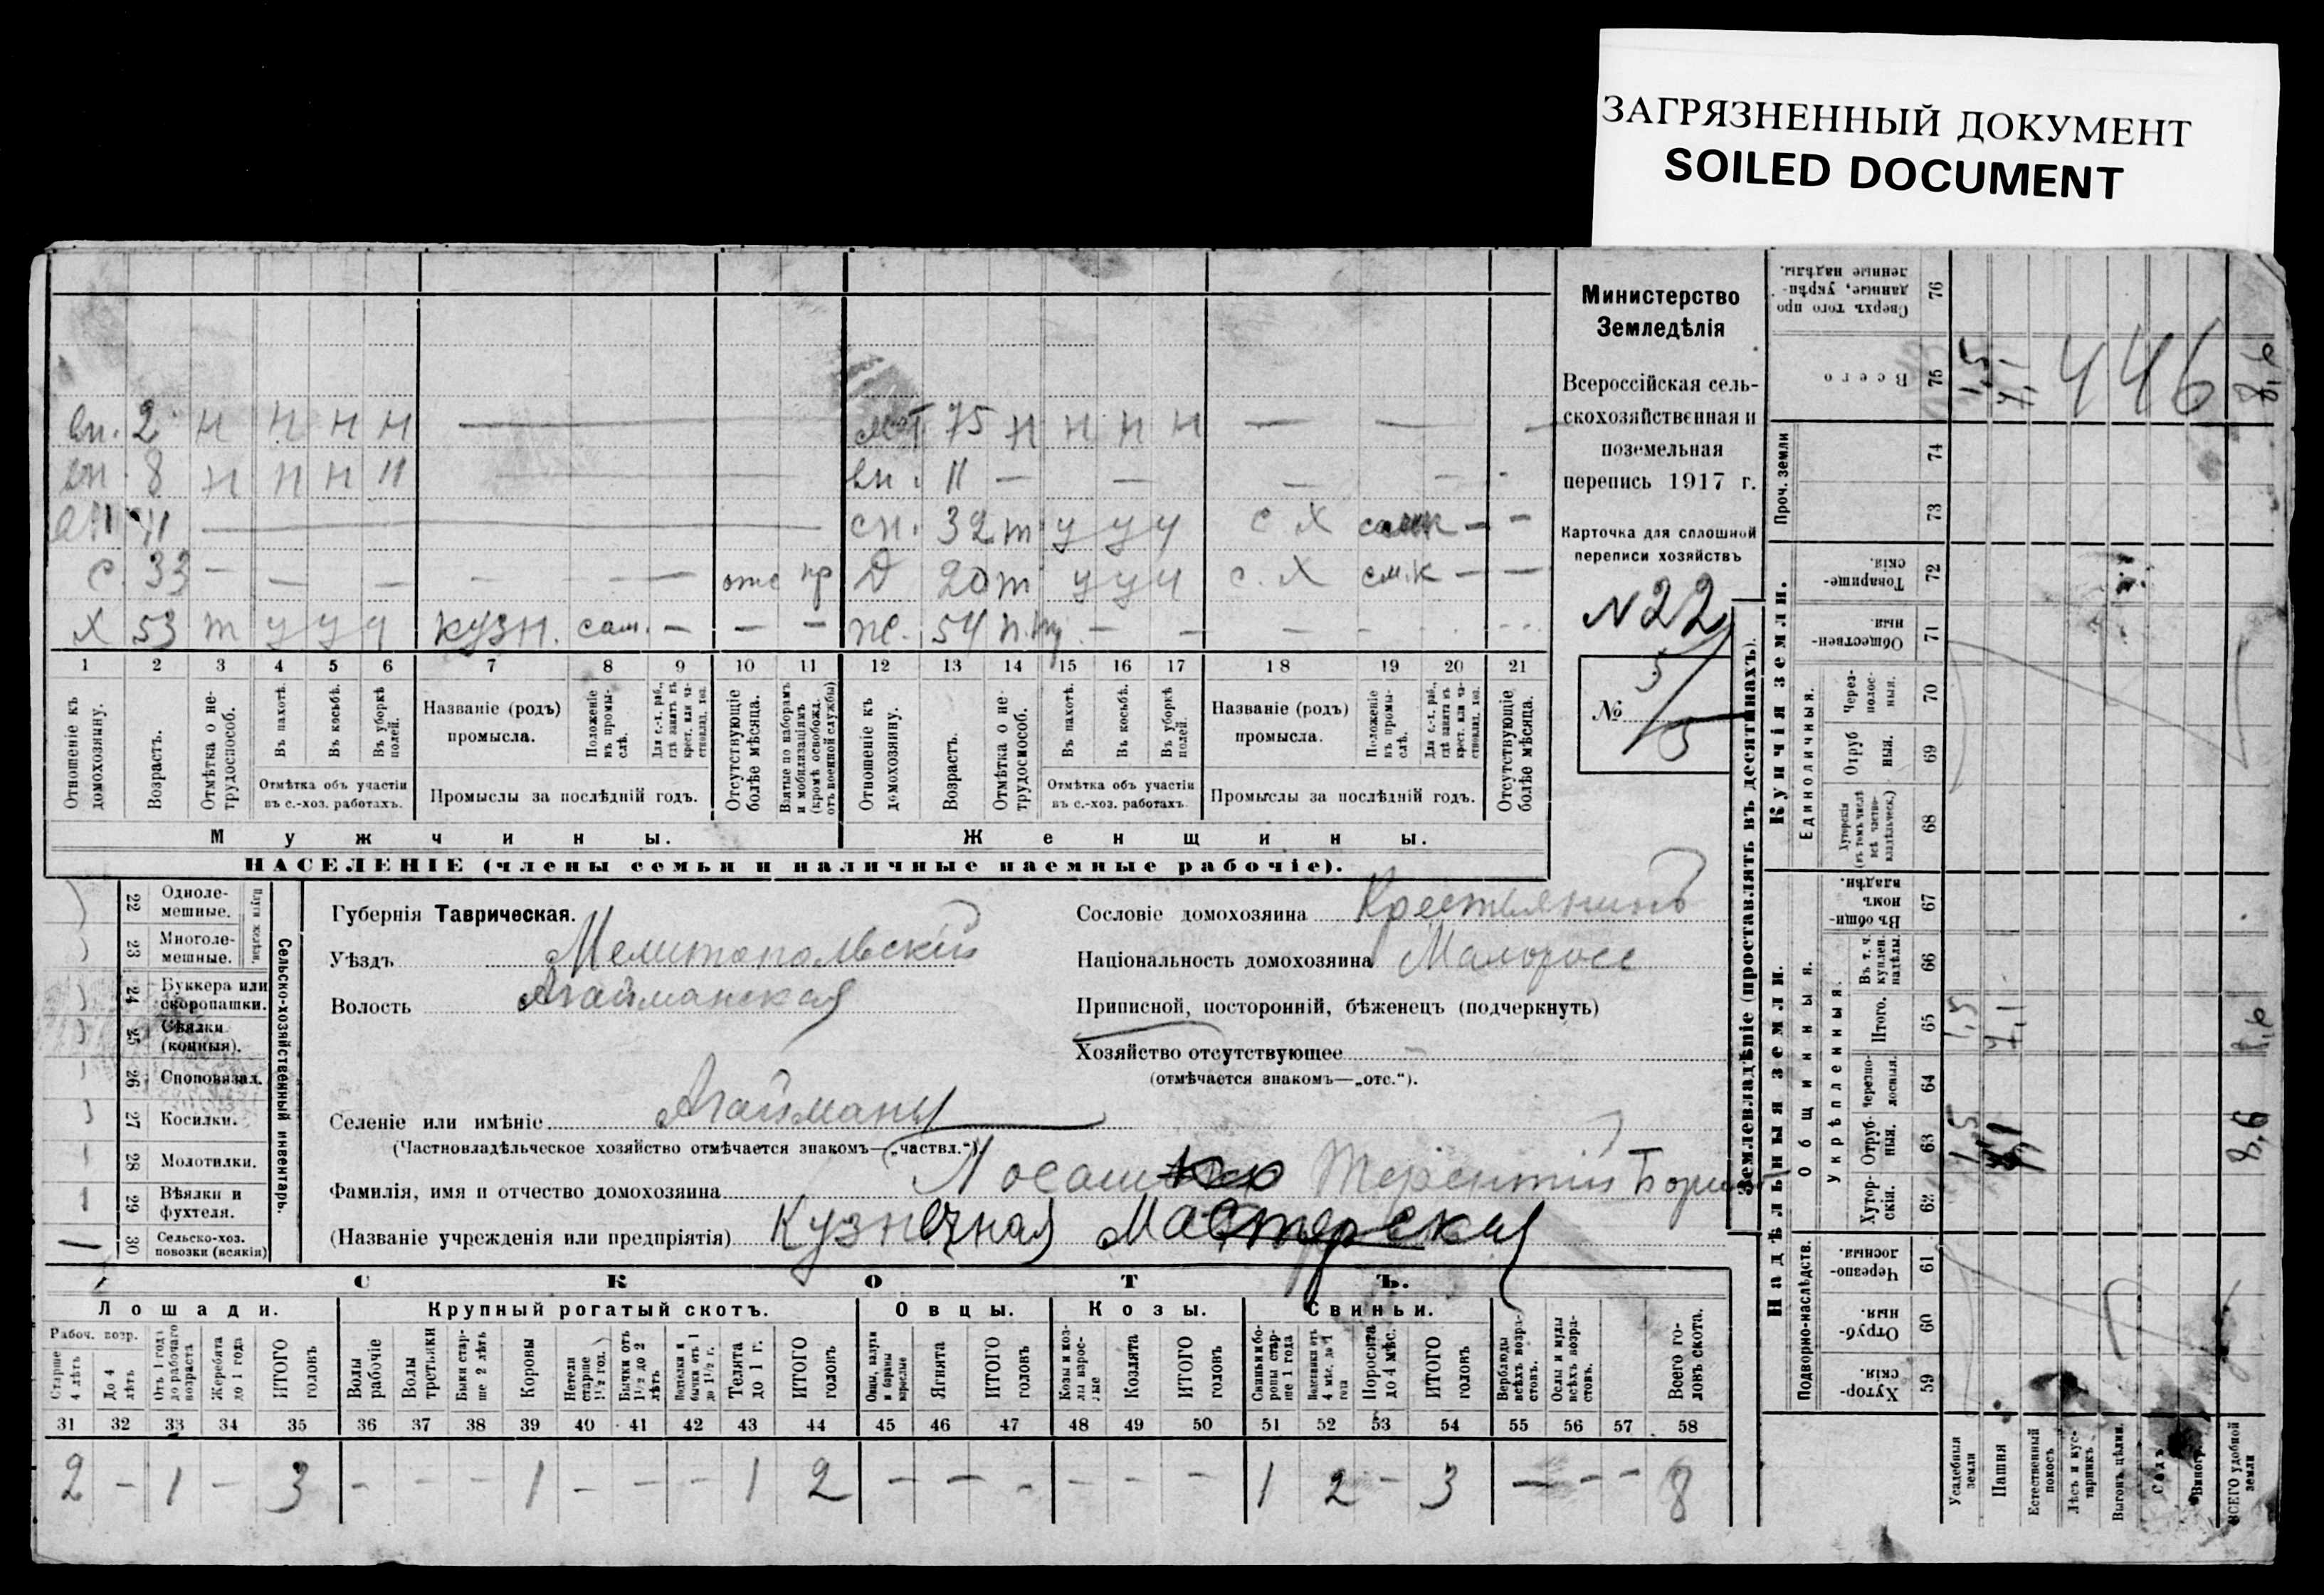 ЗАГРЯЗНЕННЫЙ ДОКУМЕНТ
SOILED DOCUMENT
вп. 2 н н н н — мат. 75 н н н н — —
вн. 8 н н н н — вн. 11 — — — — -
вн 11 — сн. 32 т у у у с х самк - -
с. 33 — — — — — — отс пр д 20 т у у у с. х см.к — —
х 53 т у у у кузн. сам. — — — ж. 54 п. — — — — - -
1 2 3 4 5 6 7 8 9 10 11 12 13 14 15 16 17 18 19 20 21
Отношеніе къ домохозяину.
Возрастъ.
Отмѣтка о не-трудоспособ.
Въ пахотѣ.
Въ косьбѣ.
Въ уборкѣ полей.
Отмѣтка объ участіи
въ с.-хоз. работахъ.
Названіе (родъ)
промысла.
Положеніе въ промы-слѣ.
Для с.-х. раб., гдѣ занятъ въ крест. или ча-стновлад. хоз.
Промыслы за послѣдній годъ.
Отсутствующіе болѣе мѣсяца.
Взятые по наборамъ и мобилизаціямъ (кромѣ освобожд. отъ военной службы)
Отношеніе къ домохозяину.
Возрастъ.
Отмѣтка о не-трудоспособ.
Въ пахотѣ.
Въ косьбѣ.
Въ уборкѣ полей.
Отмѣтка объ участіи
въ с.-хоз. работахъ.
Названіе (родъ)
промысла.
Положеніе въ промы-слѣ.
Для с.-х. раб., гдѣ занята въ крест. или ча-стновлад. хоз.
Промыслы за послѣдній годъ.
Отсутствующіе болѣе мѣсяца.
Мужчины.
Женщины.
НАСЕЛЕНІЕ (члены семьи и наличные наемные рабочіе).
Министерство
Земледѣлія
Всероссійская сель-
скохозяйственная и
поземельная
перепись 1917 г.
Карточка для сплошной
переписи хозяйствъ
N 22
№ 5
Сельско-хозяйственный инвентарь.
Плуги желѣзн.
22 Одноле-мешные.
23 Многоле-мешные.
24 Буккера или скоропашки.
25 Сѣялки (конныя).
26 Споповязал.
27 Косилки.
28 Молотилки.
29 Вѣялки и фухтеля.
30 Сельско-хоз. повозки (всякія)
Губернія Таврическая.
Уѣздъ Мелитопольскій
Волость Агайманская
Селеніе или имѣніе Агайманы
(Частновладѣльческое хозяйство отмѣчается знакомъ—„частвл.“).
Фамилія, имя и отчество домохозяина Терентій
(Названіе учрежденія или предпріятія) Кузнечная Мастерская
Сословіе домохозяина Крестьянинъ
Національность домохозяина Малороссъ
Приписной, посторонній, бѣженецъ (подчеркнуть)
Хозяйство отсутствующее —
(отмѣчается знакомъ—„отс.“).
СКОТЪ.
Лошади. Крупный рогатый скотъ. Овцы. Козы. Свиньи.
Рабоч. возр.
Старше 4 лѣтъ
До 4 лѣтъ
Отъ 1 года до рабочаго возраста
Жеребята до 1 года
ИТОГО головъ
Волы рабочіе
Волы третьяки
Быки стар-ше 2 лѣтъ
Коровы
Нетели старше 1½ год.
Бычки отъ 1½ до 2 лѣтъ
Телята до 1 г.
ИТОГО головъ
Овцы, валухи и бараны взрослые
Ягнята
ИТОГО головъ
Козы и коз-лы взрос-лые
Козлята
ИТОГО головъ
Свиньи и бо-ровы стар-ше 1 года
Подсвинки отъ 4 мѣс. до 1 года
Поросята до 4 мѣс.
ИТОГО головъ
Верблюды всѣхъ возра-стовъ.
Ослы и мулы всѣхъ возра-стовъ.
Всего го-ловъ скота.
31 32 33 34 35 36 37 38 39 40 41 42 43 44 45 46 47 48 49 50 51 52 53 54 55 56 57 58
2 - 1 - 3 - - - 1 - - - 1 2 - - - - - - 1 2 - 3 - - - 8
Землевладѣніе (проставлять въ десятинахъ).
Надѣльныя земли.
Подворно-наслѣдств.
Хутор-скія. 59
Отруб-ныя. 60
Черезпо-лосныя. 61
Общинныя.
Укрѣпленныя.
Хутор-скія. 62
Отруб-ныя. 63 1,5 7,1 8,6
Черезпо-лосныя. 64
Итого. 65 1,5 7,1 8,6
Въ т. ч. куплен. надѣлы. 66
Въ общин-номъ владѣн. 67
Купчія земли.
Единоличныя.
Хуторскія (въ томъ числѣ всѣ частно-владѣльческ.) 68
Отруб-ныя. 69
Через-полос-ныя. 70
Обществен-ныя. 71
Товарище-скія. 72
Проч. земли 73 74
Всего 75 1,5 7,1 446 8,6
Сверхъ того про-данные, укрѣп-ленные надѣлы. 76
Усадебныя земли
Пашня
Естественный покосъ
Лѣсъ и кус-тарникъ
Выгонъ, цѣлин.
Садъ
Виногр.
ВСЕГО удобной земли